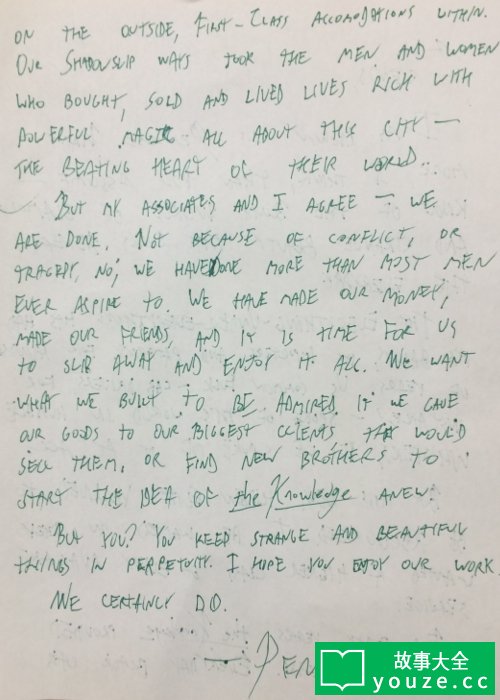 ON THE OUTSIDE, FIRST-CLASS ACCOMODATIONS WITHIN.
OUR SHADOWSLIP WAYS TOOK THE MEN AND WOMEN
WHO BOUGHT, SOLD AND LIVED LIVES RICH WITH
POWERFUL MAGIC ALL ABOUT THIS CITY —
THE BEATING HEART OF THEIR WORLD..
BUT MY ASSOCIATES AND I AGREE — WE
ARE DONE. NOT BECAUSE OF CONFLICT, OR
TRAGEDY, NO; WE HAVE DONE MORE THAN MOST MEN
EVER ASPIRE TO. WE HAVE MADE OUR MONEY,
MADE OUR FRIENDS, AND IT IS TIME FOR US
TO SLIP AWAY AND ENJOY IT ALL. WE WANT
WHAT WE BUILT TO BE ADMIRED. IF WE GAVE
OUR GOODS TO OUR BIGGEST CLIENTS THAT WOULD
SELL THEM, OR FIND NEW BROTHERS TO
START THE IDEA OF the Knowledge ANEW.
BUT YOU? YOU KEEP STRANGE AND BEAUTIFUL
THINGS IN PERPETUITY. I HOPE YOU ENJOY OUR WORK.
WE CERTAINLY DO.
— PEN
故事大全
youze.cc